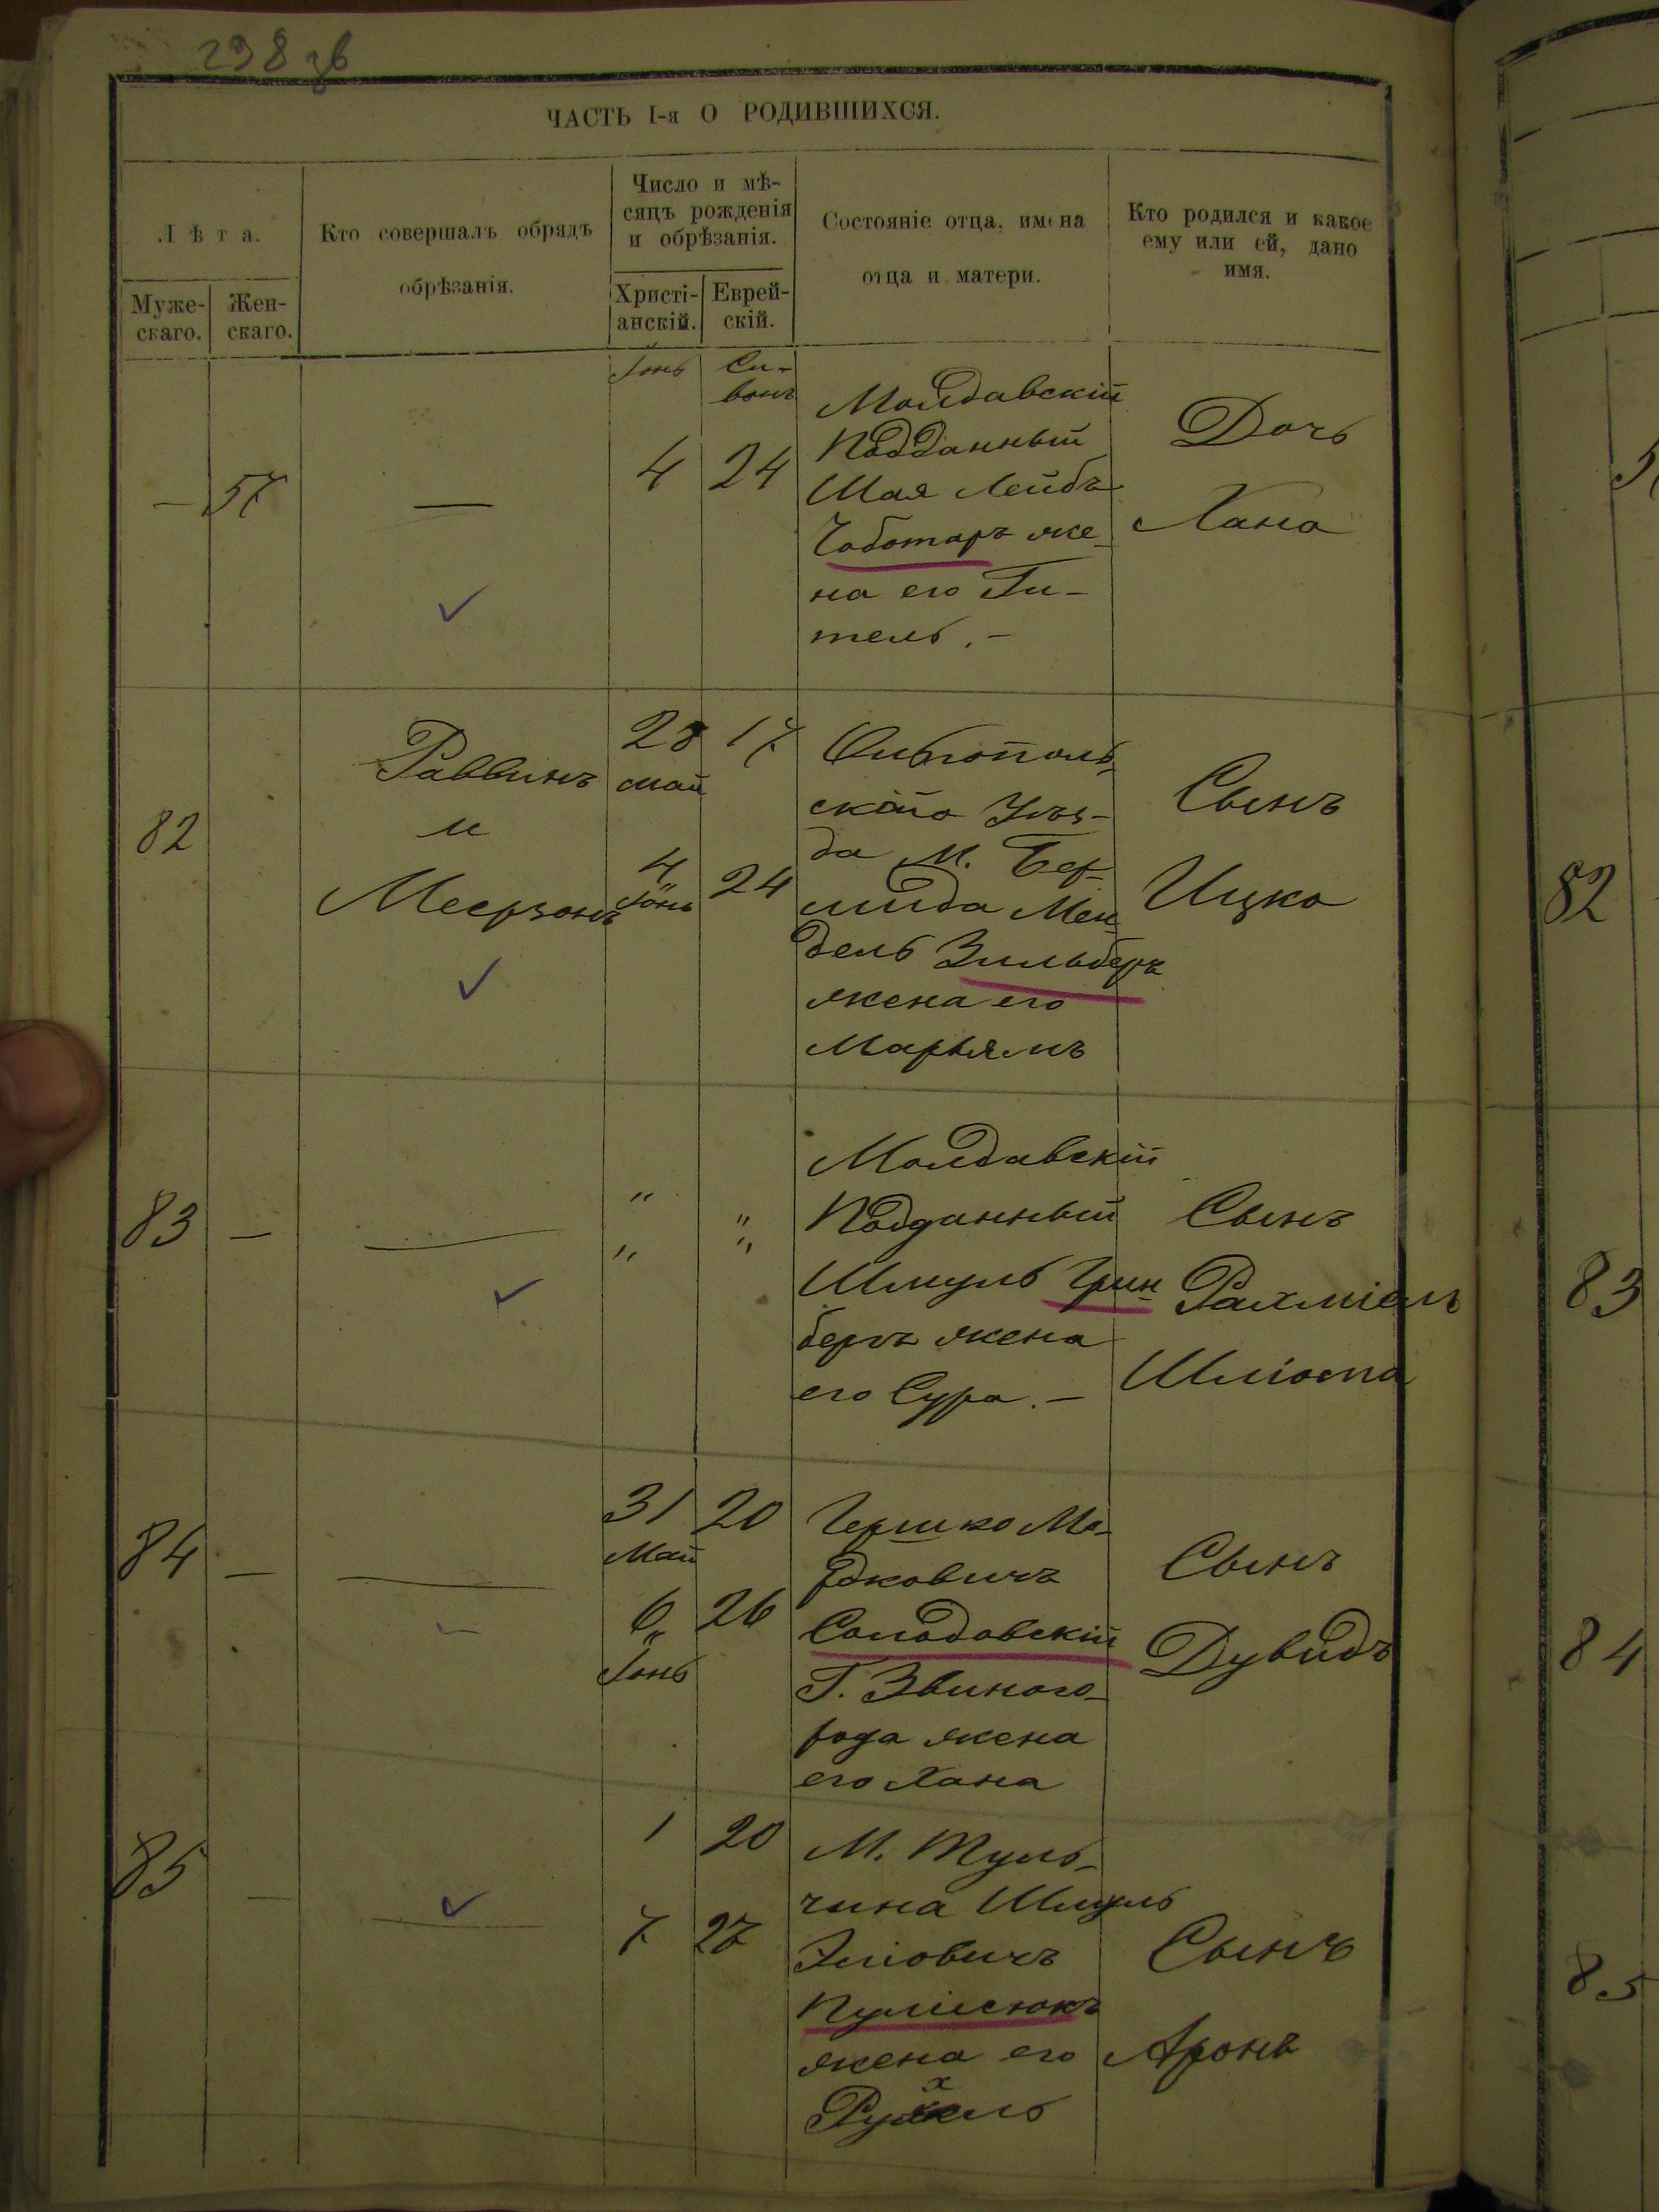 298 зв
ЧАСТЬ I-я О РОДИВШИХСЯ.
Лѣта.
Муже-
скаго.
Жен-
скаго.
Кто совершалъ обрядъ
обрѣзанія.
Число и мѣ-
сяцъ рожденія
и обрѣзанія.
Христі-
анскій.
Еврей-
скій.
Состояніе отца, имена
отца и матери.
Кто родился и какое
ему или ей, дано
имя.
Іюнь
Си-
ванъ
— 57
—
4 24
Молдавскій
Подданный
Шая Лейбъ
Чоботаръ же-
на его Ги-
тель. —
Дочь
Хана
82
Раввинъ
и
Меерзонъ
28 17
май
4 24
Іюнь
скаго Уѣз-
да М. Бер-
шида Мен-
дель Зильберъ
жена его
Марьямъ
Сынъ
Ицко
83 — —
" "
" "
Молдавскій
Подданный
Шмуль Грин-
беръ жена
его Сура. —
Сынъ
Рахміель
Шліома
84 — —
31 20
Май
6 26
Іюнь
Гершко Мо-
рдковичъ
Солодовскій
Г. Звиного-
рода жена
его Хана
Сынъ
Дувидъ
85 — —
1 20
7 27
М. Туль-
чина Шмуль
Эліовичъ
жена его
Рухель
Сынъ
Аронъ
82
83
84
85